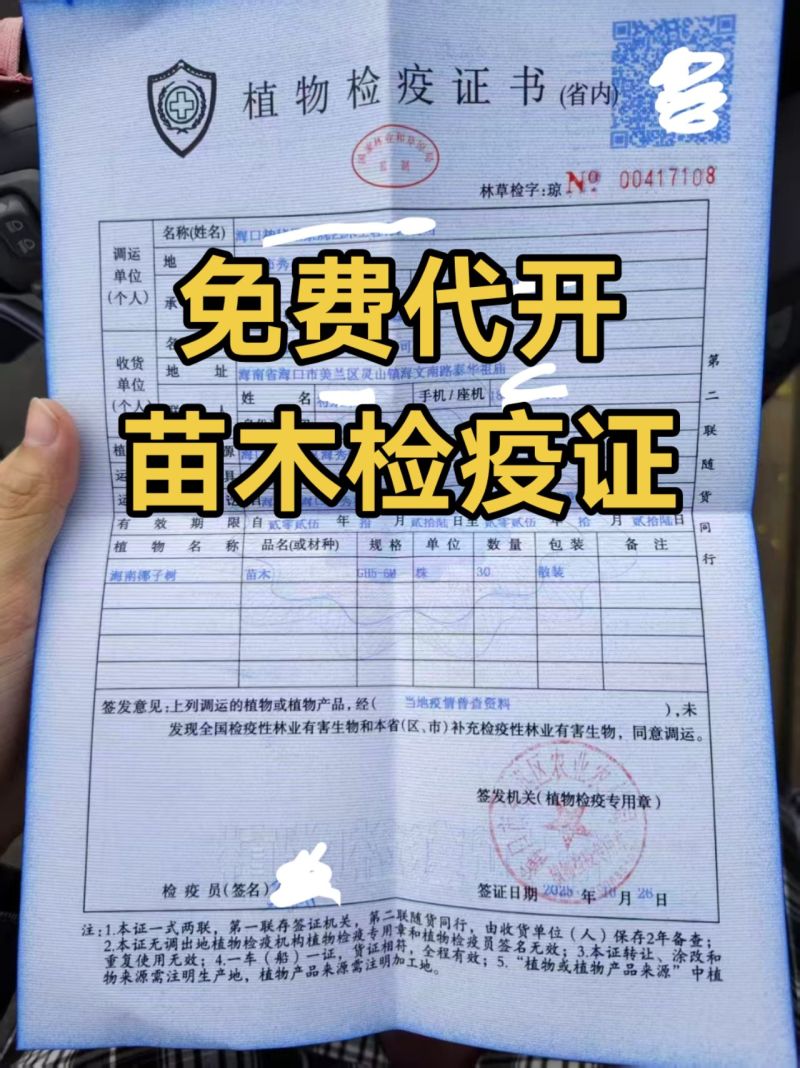 植物检疫证书(省内)
林草检字:琼 No 00417108
免费代开
苗木检疫证
调运单位(个人)
名称(姓名)
地
收货单位(个人)
地 址 海南省海口市美兰区灵山镇海文南路泰华祖庙
姓 名
手机/座机
有效期限 自 贰零贰伍 年 拾 月 贰拾陆 日至 贰零贰伍 年 拾 月 贰拾陆 日
植物名称 品名(或材种) 规格 单位 数量 包装 备注
海南椰子树 苗木 株 30 散装
第二联随货同行
签发意见:上列调运的植物或植物产品,经( 当地疫情普查资料 ),未
发现全国检疫性林业有害生物和本省(区、市)补充检疫性林业有害生物,同意调运。
签发机关(植物检疫专用章)
检疫员(签名)
签证日期 2025 年 10 月 26 日
注:1.本证一式两联,第一联存签证机关,第二联随货同行,由收货单位(人)保存2年备查;
2.本证无调出地植物检疫机构植物检疫专用章和植物检疫员签名无效;3.本证转让、涂改和
重复使用无效;4.一车(船)一证,货证相符,全程有效;5.“植物或植物产品来源”中植
物来源需注明生产地,植物产品来源需注明加工地。